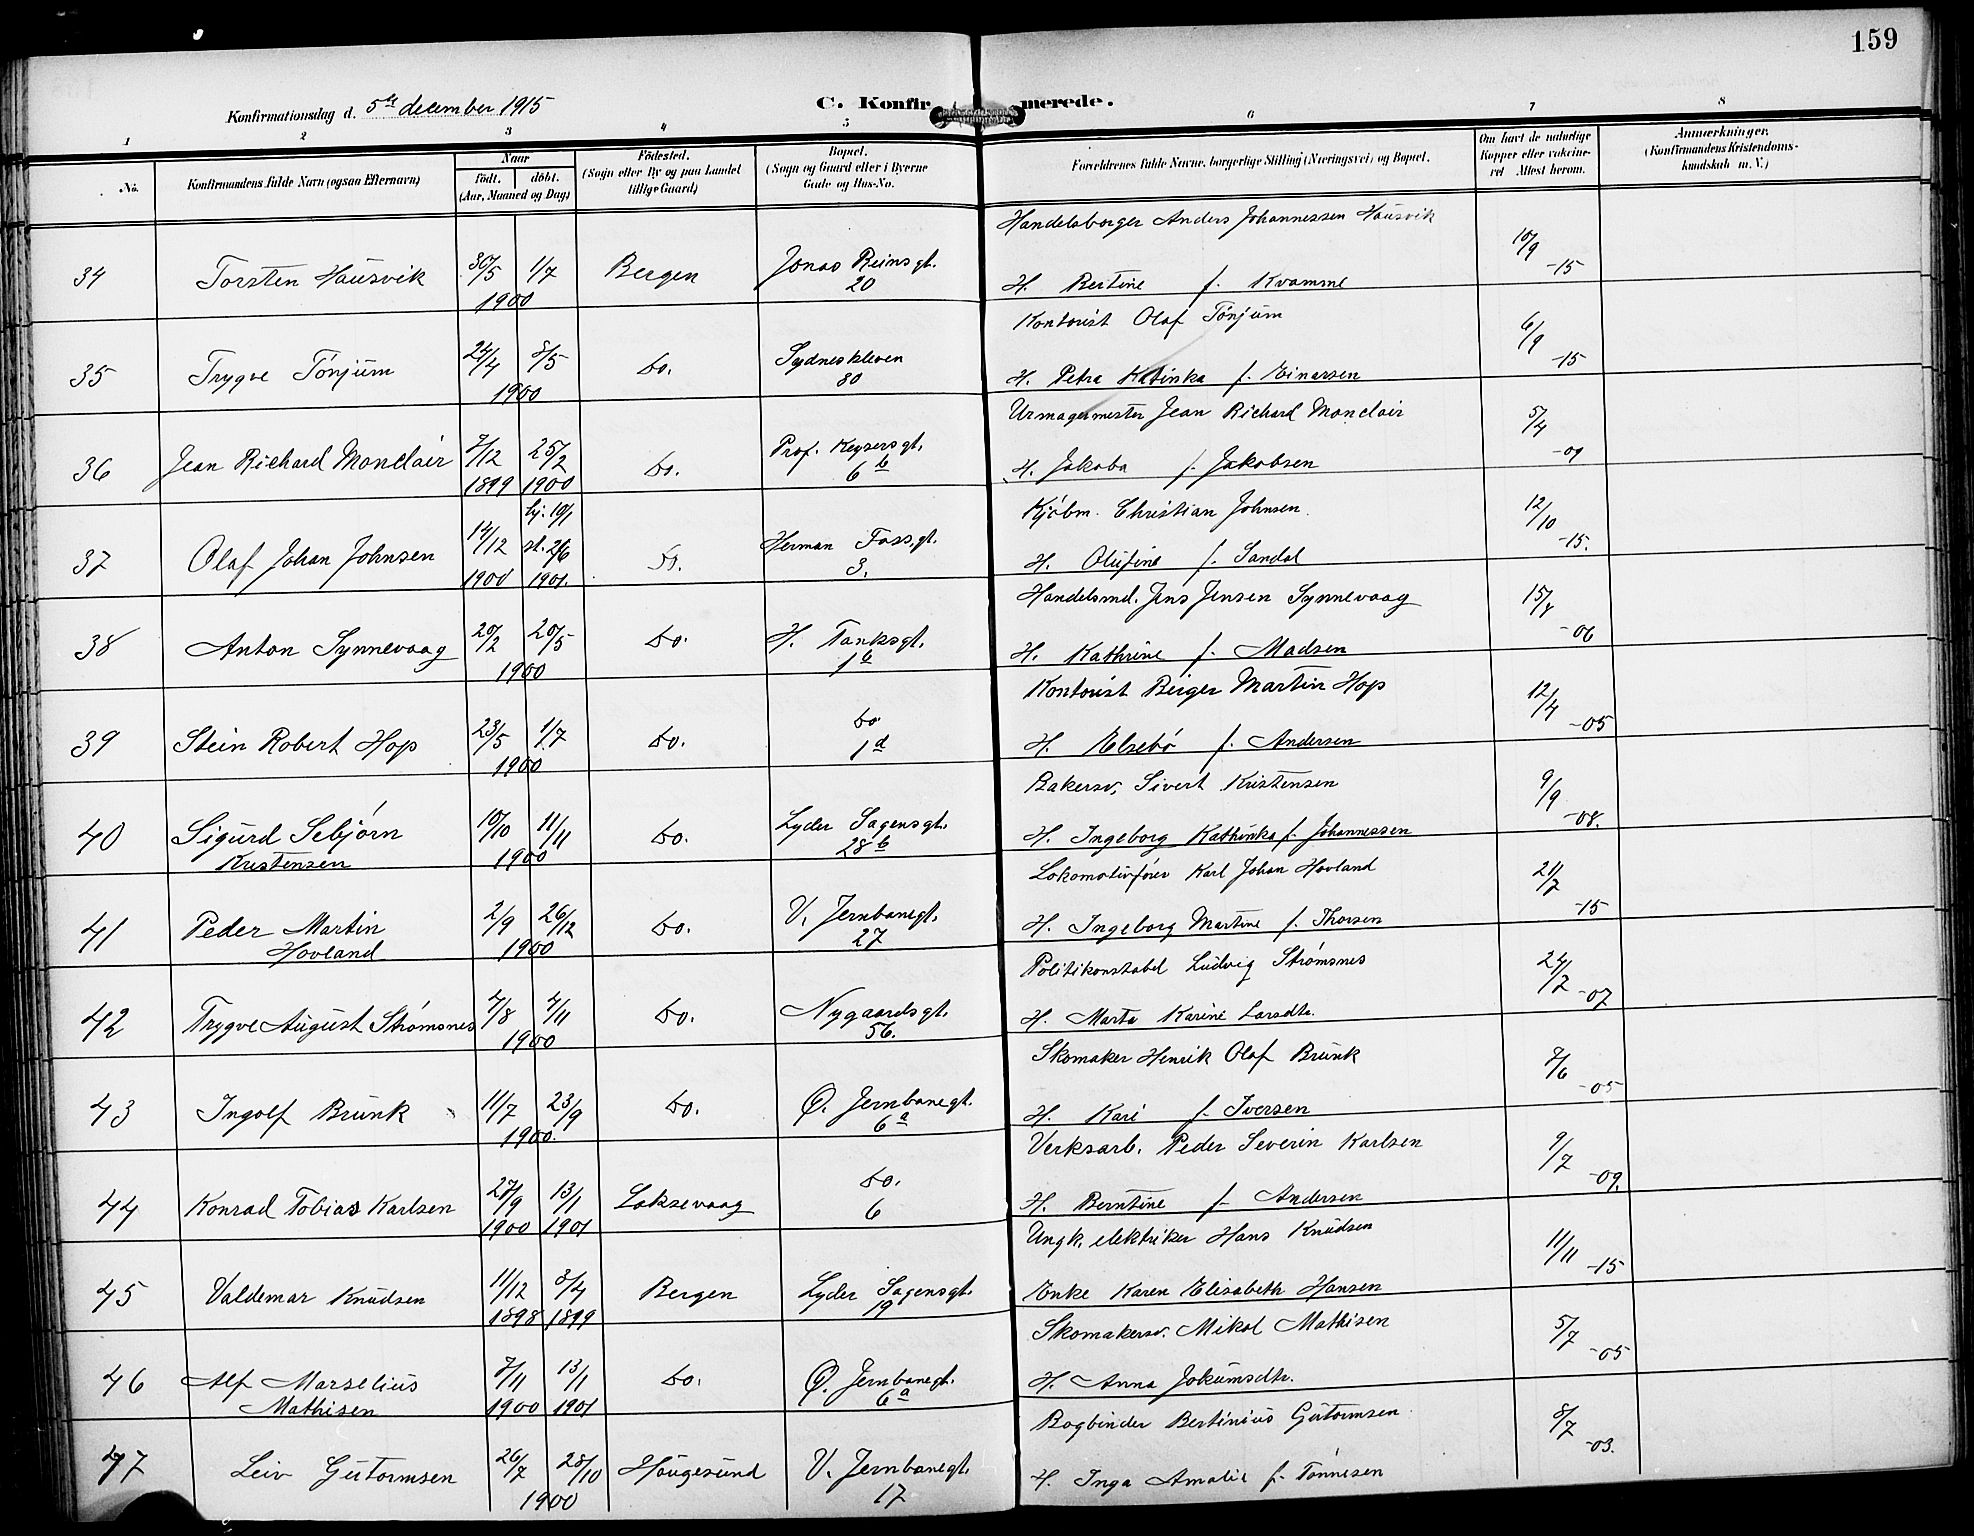 159
Konfirmationsdag d. 5te december 1915
C. Konfirmerede.
1 2 3 4 5 6 7 8
No.
Konfirmandens fulde Navn (ogsaa Efternavn)
Naar
født. døbt.
(Aar, Maaned og Dag)
Fødested.
(Sogn eller By og paa Landet
tillige Gaard)
Bopæl.
(Sogn og Gaard eller i Byerne
Gade og Hus-No.
Forældrenes fulde Navne, borgerlige Stilling (Næringsvei) og Bopæl.
Om havt de naturlige
Kopper eller vakcine-
ret Attest herom.
Anmærkninger.
(Konfirmandens Kristendoms-
kundskab m. V.)
Handelsborger Anders Johannessen Hausvik
34 Torsten Hausvik 30/5 1/7 Bergen Jonas Reinsgt. 10/9 -15
1900 20 H. Bertine f. Kvamme
Kontorist Olaf Tønjum
35 Trygve Tønjum 24/4 8/5 do. Sydneskleven 6/9 -15
1900 80 H. Petra Katinka f. Einarsen
Urmagermester Jean Richard Monclair
36 Jean Richard Monclair 7/12 25/2 do. Prof. Keysersgt. 5/4 -09
1899 1900 6b H. Jakoba f. Jakobsen
Kjøbm. Christian Johnsen.
37 Olaf Johan Johnsen 14/12 hj. 19/1 st. 2/6 do. Herman Fossgt. 12/10 -15.
1900 1901. 3. H. Olufine f. Sandal
Handelsmd. Jens Jensen Synnevaag
38 Anton Synnevaag 20/2 20/5 do. H. Tanksgt. 15/7 -06
1900 1b H. Kathrine f. Madsen
Kontorist Birger Martin Hop
39 Stein Robert Hop 23/5 1/7 do. do 12/4 -05
1900 1d H. Elsebø f. Andersen
Bakersv. Sivert Kristensen
40 Sigurd Sebjørn 10/10 11/11 do. Lyder Sagensgt. 9/9 -08.
Kristensen 1900 28b H. Ingeborg Kathinka f. Johannessen
Lokomotivfører Karl Johan Hovland
41 Peder Martin 2/9 26/12 do. V. Jernbanegt. 21/7 -15
Hovland 1900 27 H. Ingeborg Martine f. Thorsen
Politikonstabel Ludvig Strømsnes
42 Trygve August Strømsnes 4/8 4/11 do. Nygaardsgt. 24/7 -07
1900 56. H. Marta Karine Larsdtr.
Skomaker Henrik Olaf Brunk
43 Ingolf Brunk 11/7 23/9 do. Ø. Jernbanegt. 7/6 -05
1900. 6a H. Kari f. Iversen
Verksarb. Peder Severin Karlsen
44 Konrad Tobias Karlsen 27/9 13/1 Laksevaag do. 9/7 -09.
1900 1901 6 H. Berntine f. Andersen
Ungk. elektriker Hans Knudsen
45 Valdemar Knudsen 11/12 3/4 Bergen Lyder Sagensgt. 11/11 -15
1898 1899 19 Enke Karen Elisabeth Hansen
Skomakersv. Mikal Mathisen
46 Alf Marselius 7/11 13/1 do. Ø. Jernbanegt. 5/7 -05
Mathisen 1900 1901 6a H. Anna Jokumsdtr.
Bogbinder Bertinius Gutormsen
47 Leiv Gutormsen 26/7 28/10 Haugesund V. Jernbanegt. 8/7 -03.
1900 17 H. Inga Amalie f. Tønnesen